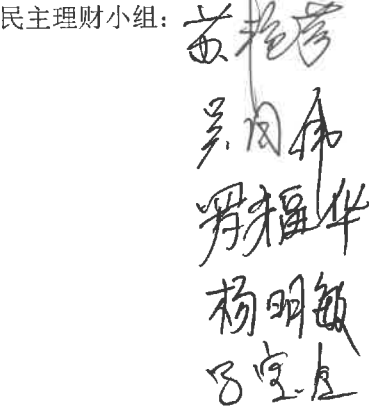 民主理财小组：苏艳芳
吴国伟
罗福华
杨明敏